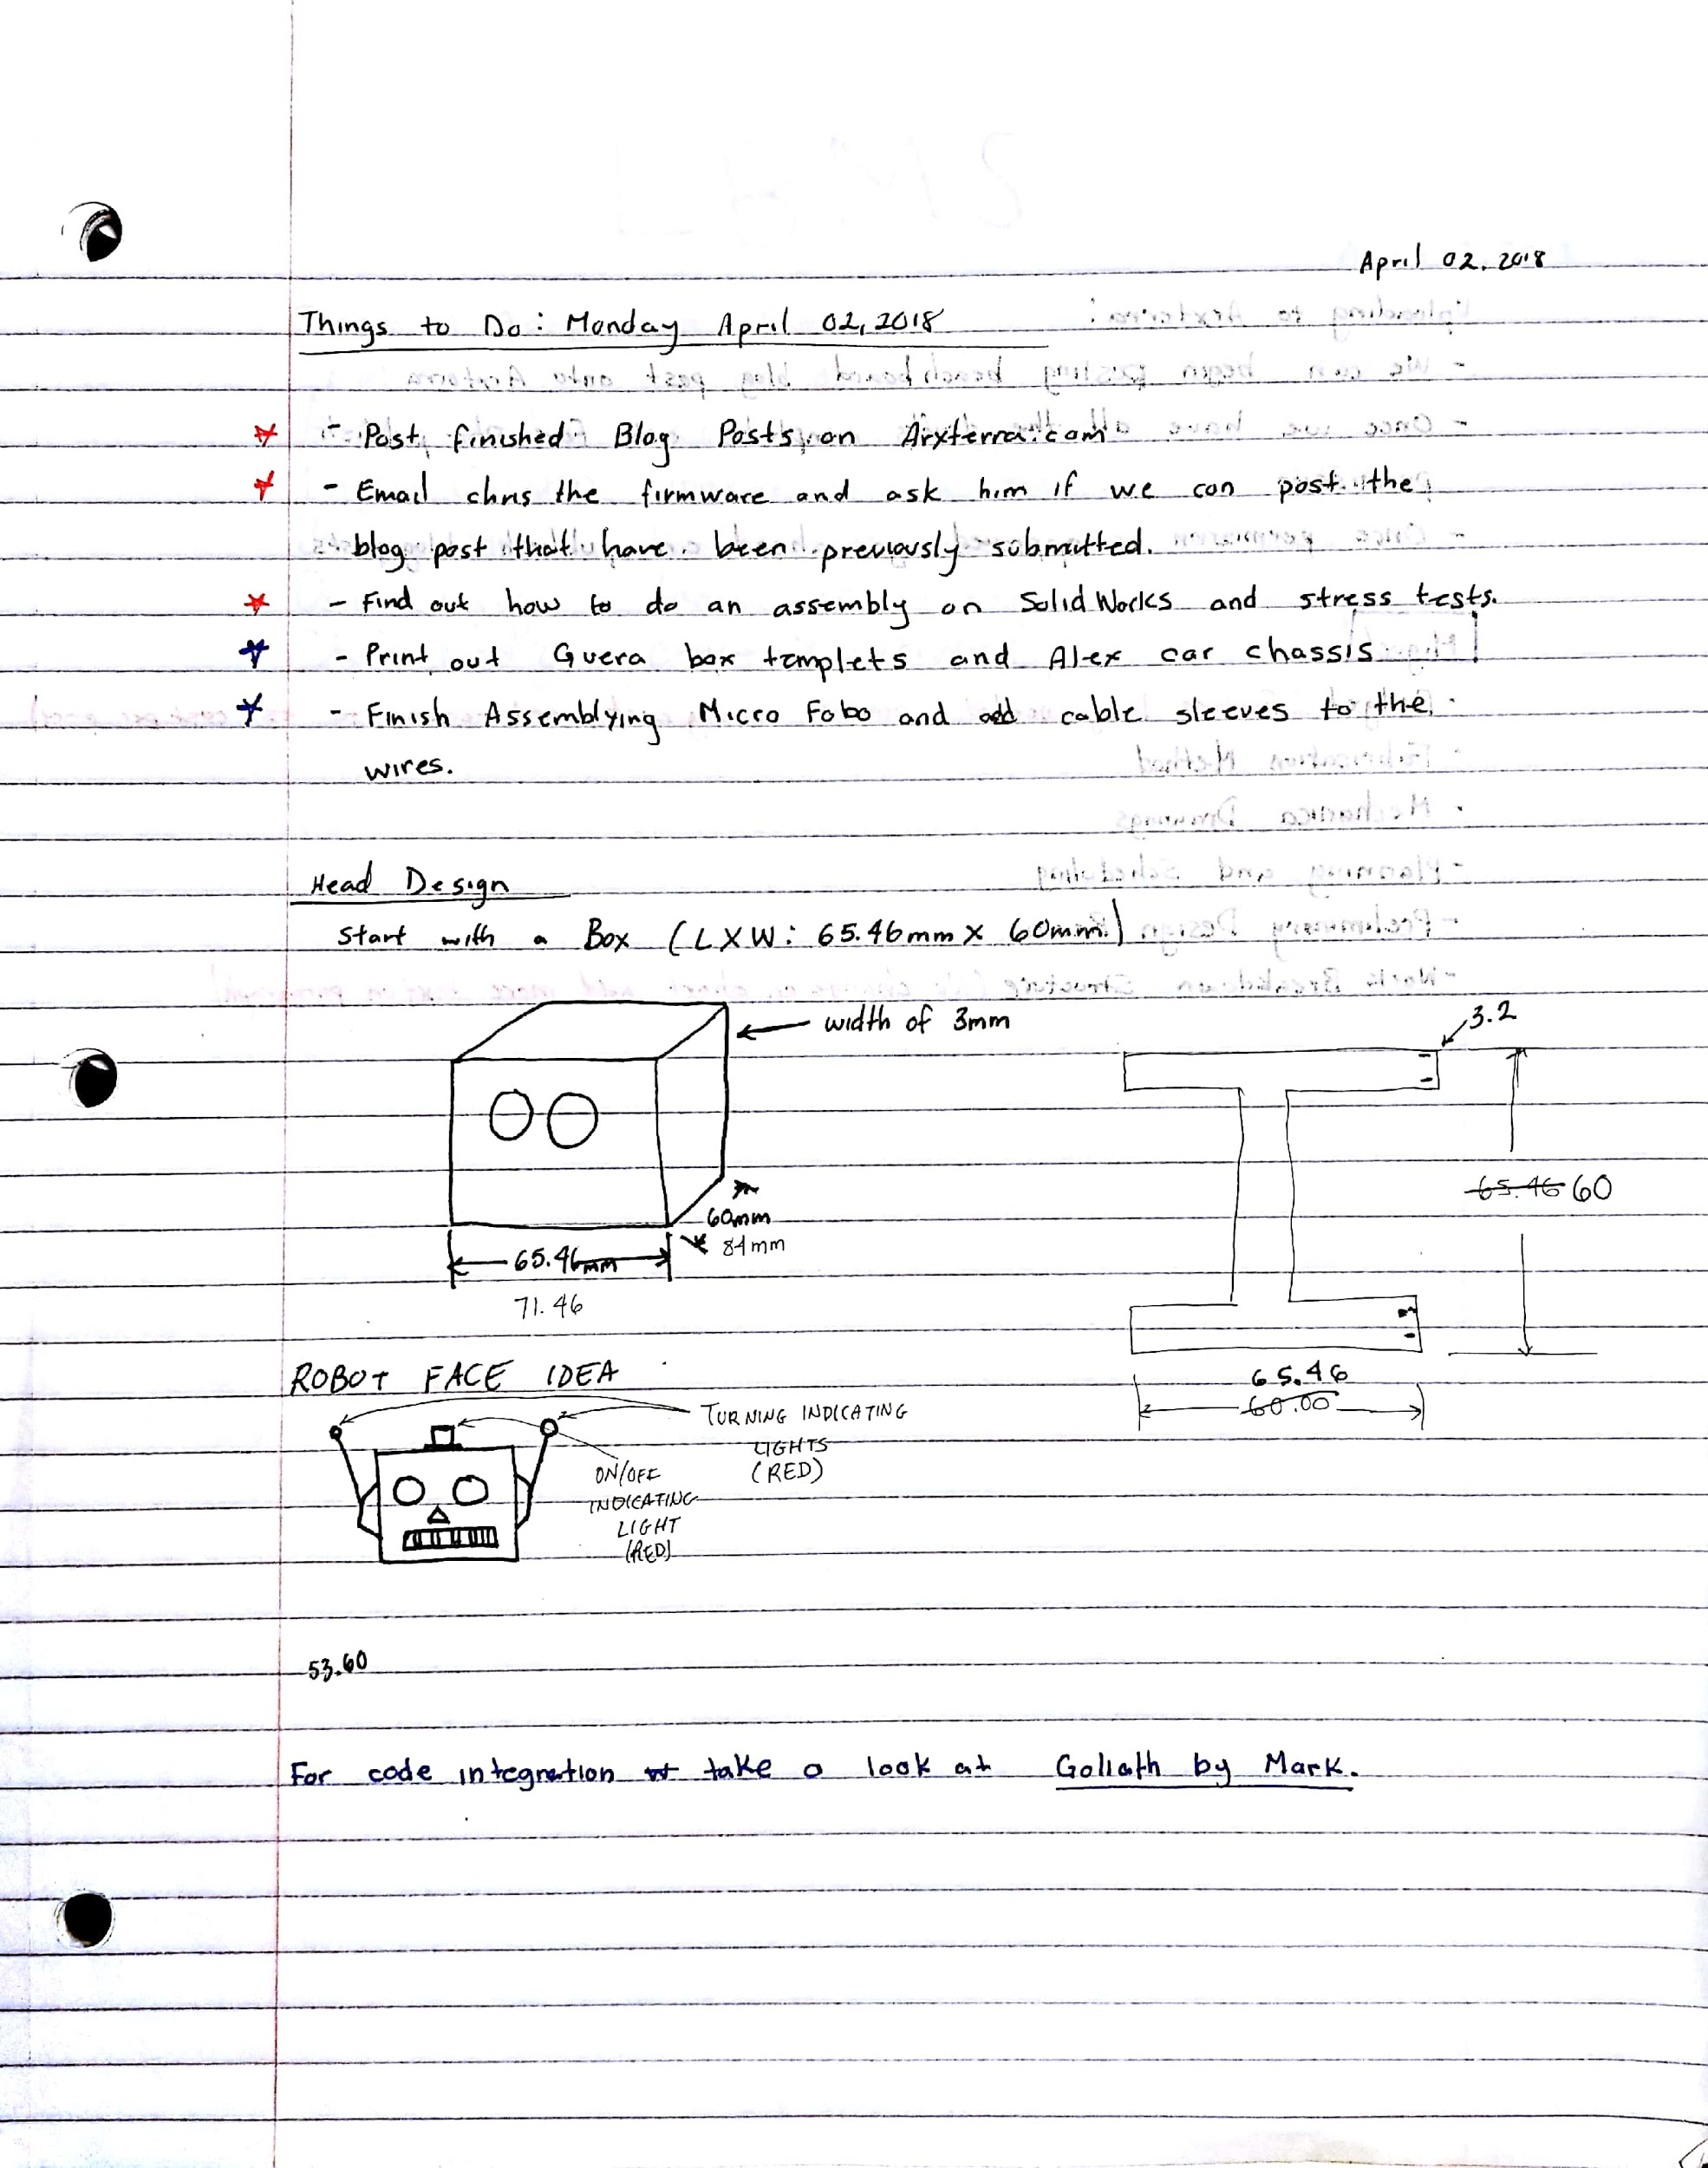 April 02, 2018
Things to Do: Monday April 02, 2018
- Post finished Blog Posts on Arxterra.com
- Email chris the firmware and ask him if we can post the
blog post that have been previously submitted.
- Find out how to do an assembly on SolidWorks and stress tests.
- Print out Guera box templets and Alex car chassis
- Finish Assemblying Micro Fobo and add cable sleeves to the
wires.
Head Design
Start with a Box (LXW: 65.46mm X 60mm)
width of 3mm
3.2
65.46 60
60mm
84mm
65.46mm
71.46
65.46
60.00
ROBOT FACE IDEA
TURNING INDICATING
LIGHTS
(RED)
ON/OFF
INDICATING
LIGHT
(RED)
53.60
For code integration take a look at Goliath by Mark.